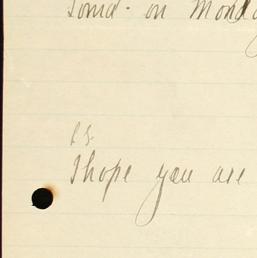 on Monday
P.S.
I hope you are